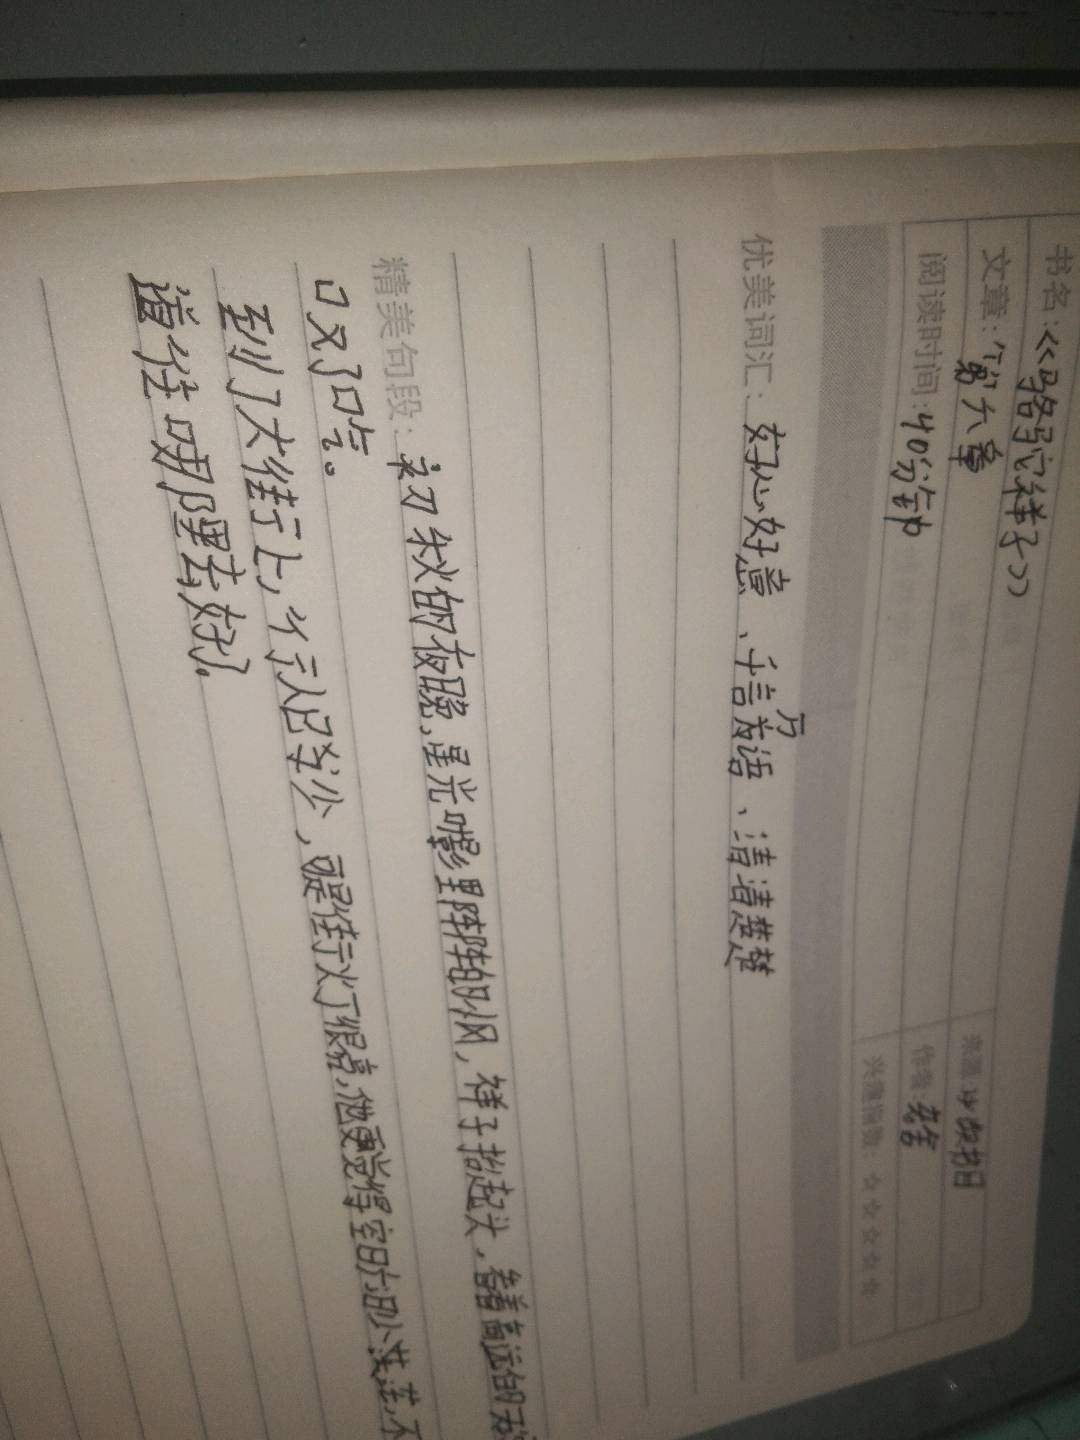 书名:《骆驼祥子》
来源:必读书目
文章:第六章
作者:老舍
阅读时间:40分钟
兴趣指数:☆☆☆☆☆
优美词汇:好心好意、千言万语、清清楚楚
精美句段:初秋的夜晚,星光叶影里阵阵的小风,祥子抬起头,看着高远的天
口叹了口气。
到了大街上,行人已实少,可是街灯很亮,他更觉得空旷渺茫,不
道往哪里去好了。